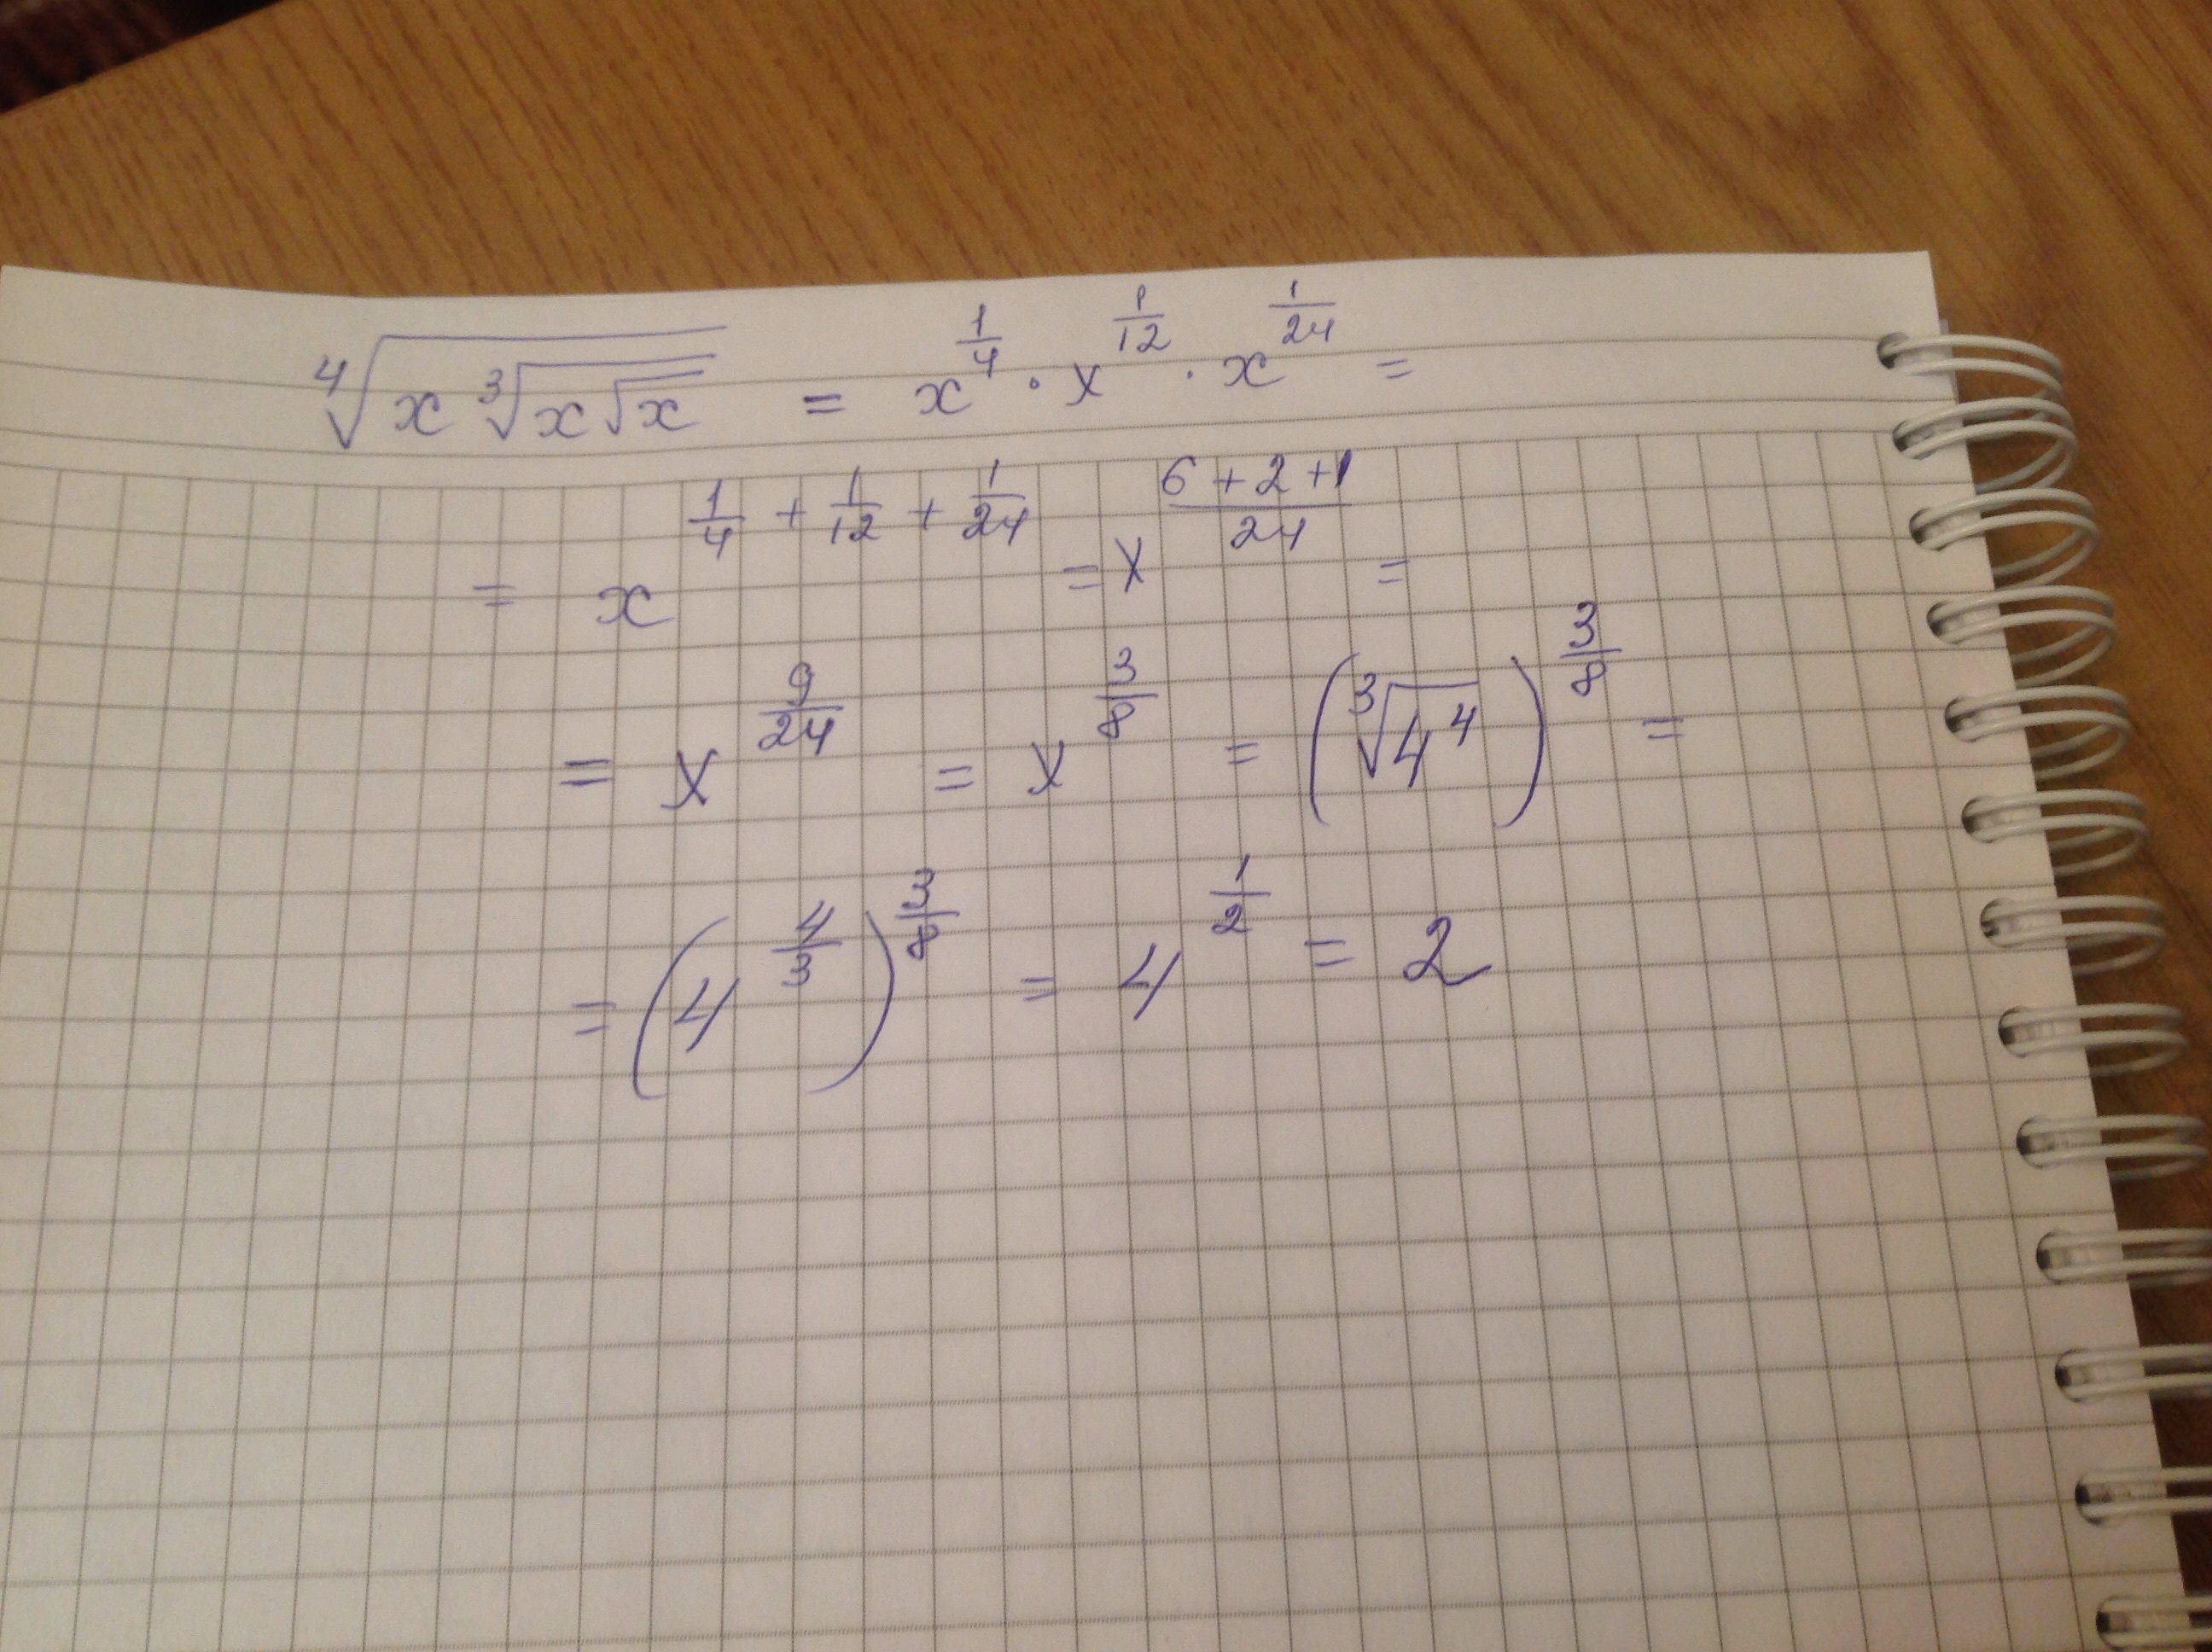 $\sqrt[4]{x\sqrt[3]{x\sqrt{x}}} = x^{\frac{1}{4}} \cdot x^{\frac{1}{12}} \cdot x^{\frac{1}{24}} =$
$= x^{\frac{1}{4} + \frac{1}{12} + \frac{1}{24}} = x^{\frac{6+2+1}{24}} =$
$= x^{\frac{9}{24}} = x^{\frac{3}{8}} = \left(\sqrt[3]{4^4}\right)^{\frac{3}{8}} =$
$= \left(4^{\frac{4}{3}}\right)^{\frac{3}{8}} = 4^{\frac{1}{2}} = 2$